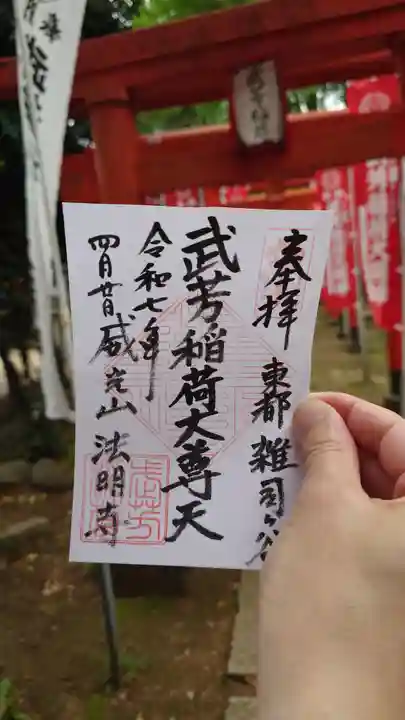 奉拝
東都雑司ヶ谷
武芳稲荷大尊天
令和七年
四月廿日
威光山
法明寺